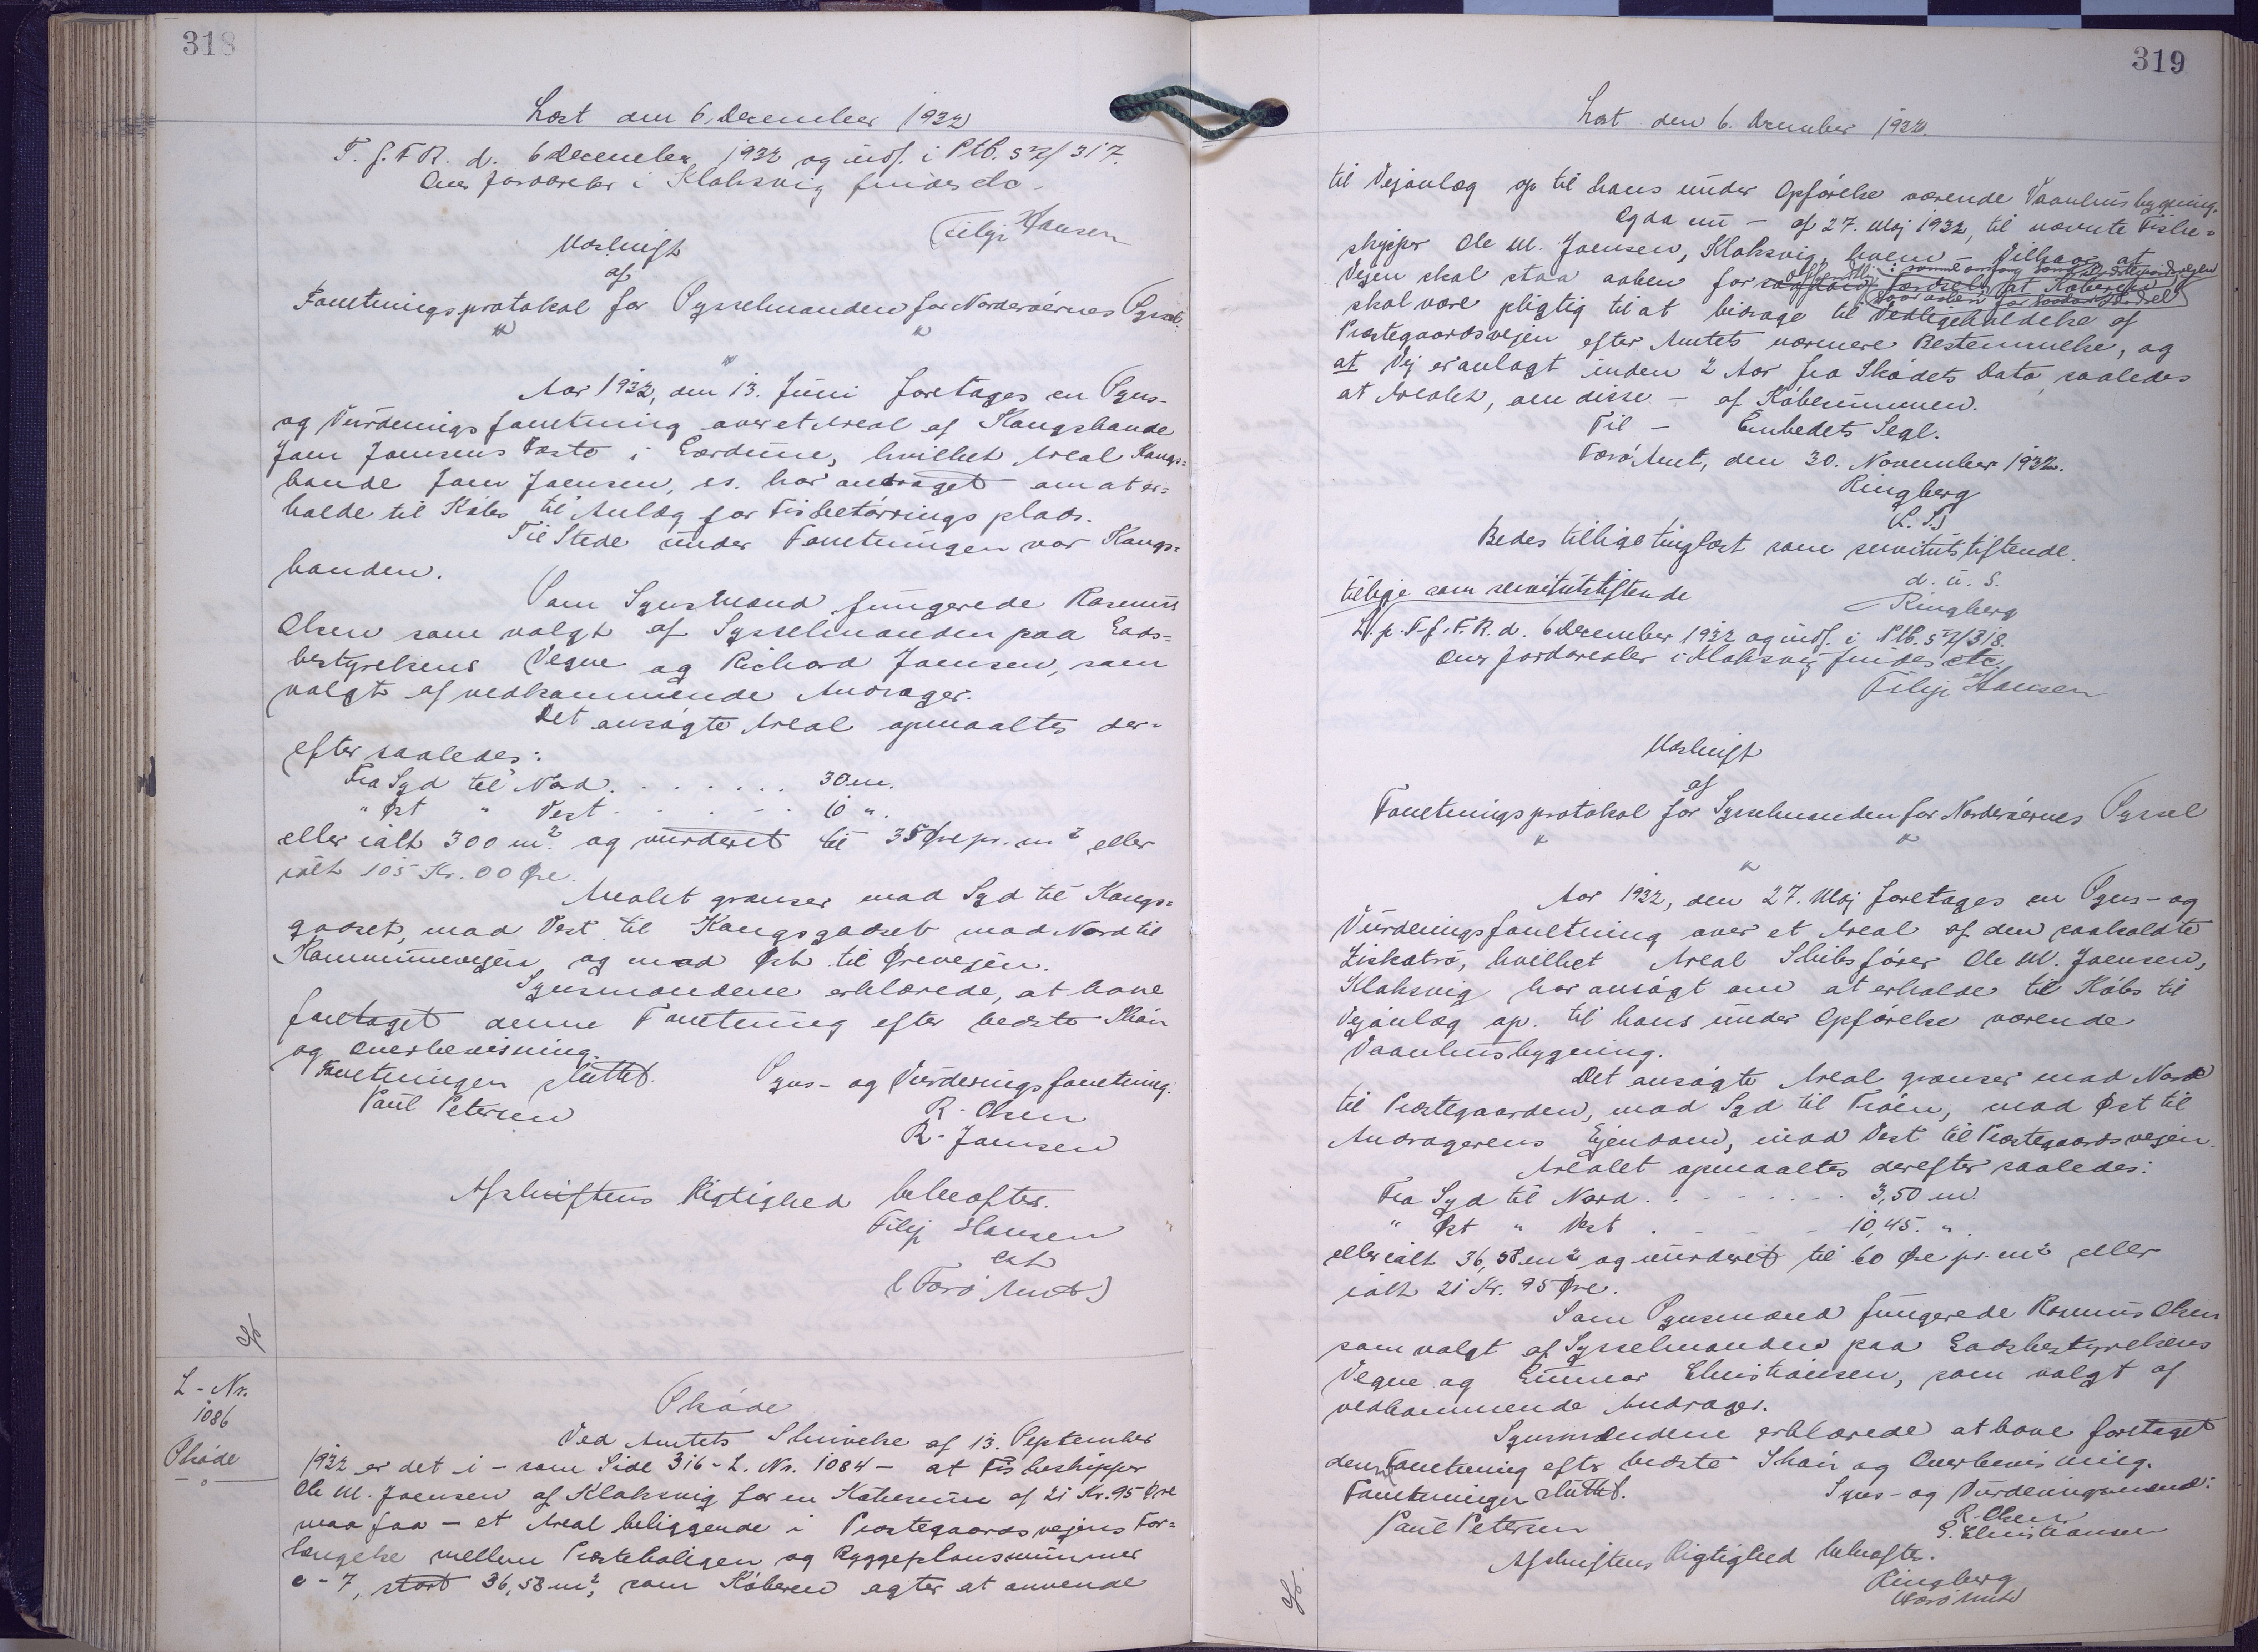 318
Læst den 6. December 1932
T. f. F R. d. 6 December 1932 og indf. i Ptb. S 2/317.
Over Jordarealer i Klaksvig findes etc.
Filip Hansen
Udskrift
af
Forretningsprotokol for Sysselmanden for Norderöernes Syssel.
Aar 1932, den 13. Juni foretages en Syns-
og Vurderingsforretning over et Areal af Kongsbonde
Joen Joensens Fæste i Gærdune, hvilket Areal Kongs=
bonde Joen Joensen, har andraget om at er=
holde til Købs til Anlæg for Fisketörringsplads.
Til Stede under Forretningen var Kongs=
bonden.
Som Synsmænd fungerede Rasmus
Olsen som valgt af Sysselmanden paa Gods=
bestyrelsens Vegne og Richard Joensen, som
valgt af vedkommende Andrager.
Det ansøgte Areal opmaaltes der=
efter saaledes:
Fra Syd til Nord . . . . . . 30 m.
" Øst " Vest . . . . . 10 ".
eller ialt 300 m². og vurderet til 35 Øre pr. m² eller
ialt 105 Kr. 00 Øre.
Arealet grænser mod Syd til Kongs=
godset, mod Vest til Kongsgodset mod Nord til
Kommunevejen og mod Øst til Ørevejen.
Synsmændene erklærede, at have
foretaget denne Forretning efter bedste Skön
og Overbevisning.
Forretningen sluttet. Syns- og Vurderingsforretning.
Paul Petersen R. Olsen
R. Joensen
Afskriftens Rigtighed bekræftes.
Filip Hansen
cst
(Færö Amt)
L-Nr.
1086
Skøde
Skøde
Ved Amtets Skrivelse af 13. September
1932 er det i - som Side 316 - L. Nr. 1084 - at Fiskeskipper
Ole M. Joensen af Klaksvig for en Købesum af 21 Kr. 95 Øre
maa faa - et Areal beliggende i Præstegaardsvejens For=
længelse mellem Præsteboligen og Byggeplansnummer
c-7, stort 36,58 m², som Køberen agter at anvende
319
Læst den 6. December 1932.
til Vejanlæg op til hans under Opførelse værende Vaanhusbygning.
Og da nu - af 27. Maj 1932, til nævnte Fiske=
skipper Ole M. Joensen, Klaksvig, hvem - Vilkaar at
Vejen skal staa aaben for offentlig Færdsel i samme Omfang som Præstegaardsvejen at Køberen
skal være pligtig til at bidrage til Vedligeholdelse af
Præstegaardsvejen efter Amtets nærmere Bestemmelse, og
at Vej er anlagt inden 2 Aar fra Skødets Dato, saaledes
at Arealet, om disse - af Købesummen.
Til - Embedets Segl.
Færö Amt, den 30. November 1932.
Ringberg
(L. S.)
Bedes tillige tinglæst som servitutstiftende.
d. u. S.
tillige som servitutstiftende Ringberg
L. p. T. f. F. R. d. 6 December 1932 og indf. i Ptb. S 2/318.
Over Jordarealer i Klaksvig findes etc.
Filip Hansen
Udskrift
af
Forretningsprotokol for Sysselmanden for Norderöernes Syssel
Aar 1932, den 27. Maj foretages en Syns- og
Vurderingsforretning over et Areal af den saakaldte
Liskatrö, hvilket Areal Skibsfører Ole M. Joensen,
Klaksvig har ansøgt om at erholde til Købs til
Vejanlæg op. til hans under Opførelse værende
Vaanhusbygning.
Det ansøgte Areal grænser mod Nord
til Præstegaarden, mod Syd til Tröen, mod Øst til
Andragerens Ejendom, mod Vest til Præstegaardsvejen.
Arealet opmaaltes derefter saaledes:
Fra Syd til Nord . . . . . . . . 3,50 m.
" Øst " Vest . . . . . 10,45. "
eller ialt 36,58 m² og vurderet til 60 Øre pr. m² eller
ialt 21 Kr. 95 Øre.
Som Synsmænd fungerede Rasmus Olsen
som valgt af Sysselmanden paa Godsbestyrelsens
Vegne og Gunnar Christiansen, som valgt af
vedkommende Andrager.
Synsmændene erklærede at have foretaget
denne Forretning efter bedste Skön og Overbevisning.
Forretningen sluttet. Syns- og Vurderingsmænd:
Paul Petersen R. Olsen
G. Christiansen
Afskriftens Rigtighed bekræftes.
Ringberg
(Færö Amt)